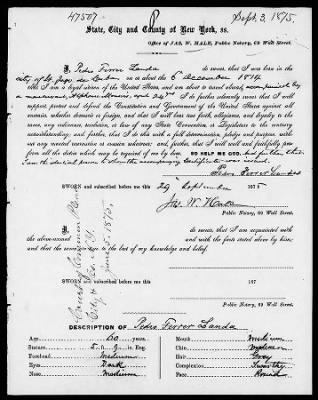 47507
Sept. 3. 1875
State, City and County of New York, ss.
Office of JAS. W. HALE, Public Notary, 69 Wall Street.
I, Pedro Ferrer Landa do swear, that I was born in the
city of St Jago de Cuba on or about the 6th December 1814
that I am a legal citizen of the United States, and am about to travel abroad, accompanied by
I do further solemnly swear that I will
support, protect and defend the Constitution and Government of the United States against all
enemies, whether domestic or foreign, and that I will bear true faith, allegiance and loyalty to the same,
any ordinance, resolution or law of any State Convention or Legislature to the contrary
notwithstanding; and further, that I do this with a full determination, pledge and purpose, without
any mental reservation or evasion whatever; and, further, that I will well and faithfully perform
all the duties which may be required of me by law. SO HELP ME GOD. And further that
I am the identical person to whom the accompanying certificate was issued.
Pedro Ferrer Landa
SWORN and subscribed before me this 29 September 187
Jas. W. Hale
Public Notary, 69 Wall Street.
Court of Common Pleas
City & Co. N.Y.
June 5. 1875.
I, do swear, that I am acquainted with
the above-named and with the facts stated above by him;
and that the same are true to the best of my knowledge and belief.
SWORN and subscribed before me this 187
Public Notary, 69 Wall Street.
DESCRIPTION OF Pedro Ferrer Landa
Age: 60 years
Mouth: medium
Stature: 5 ft. 9 in. Eng.
Chin: medium
Forehead: medium
Hair: Grey
Eyes: Dark
Complexion: Swarthy
Nose: medium
Face: Round